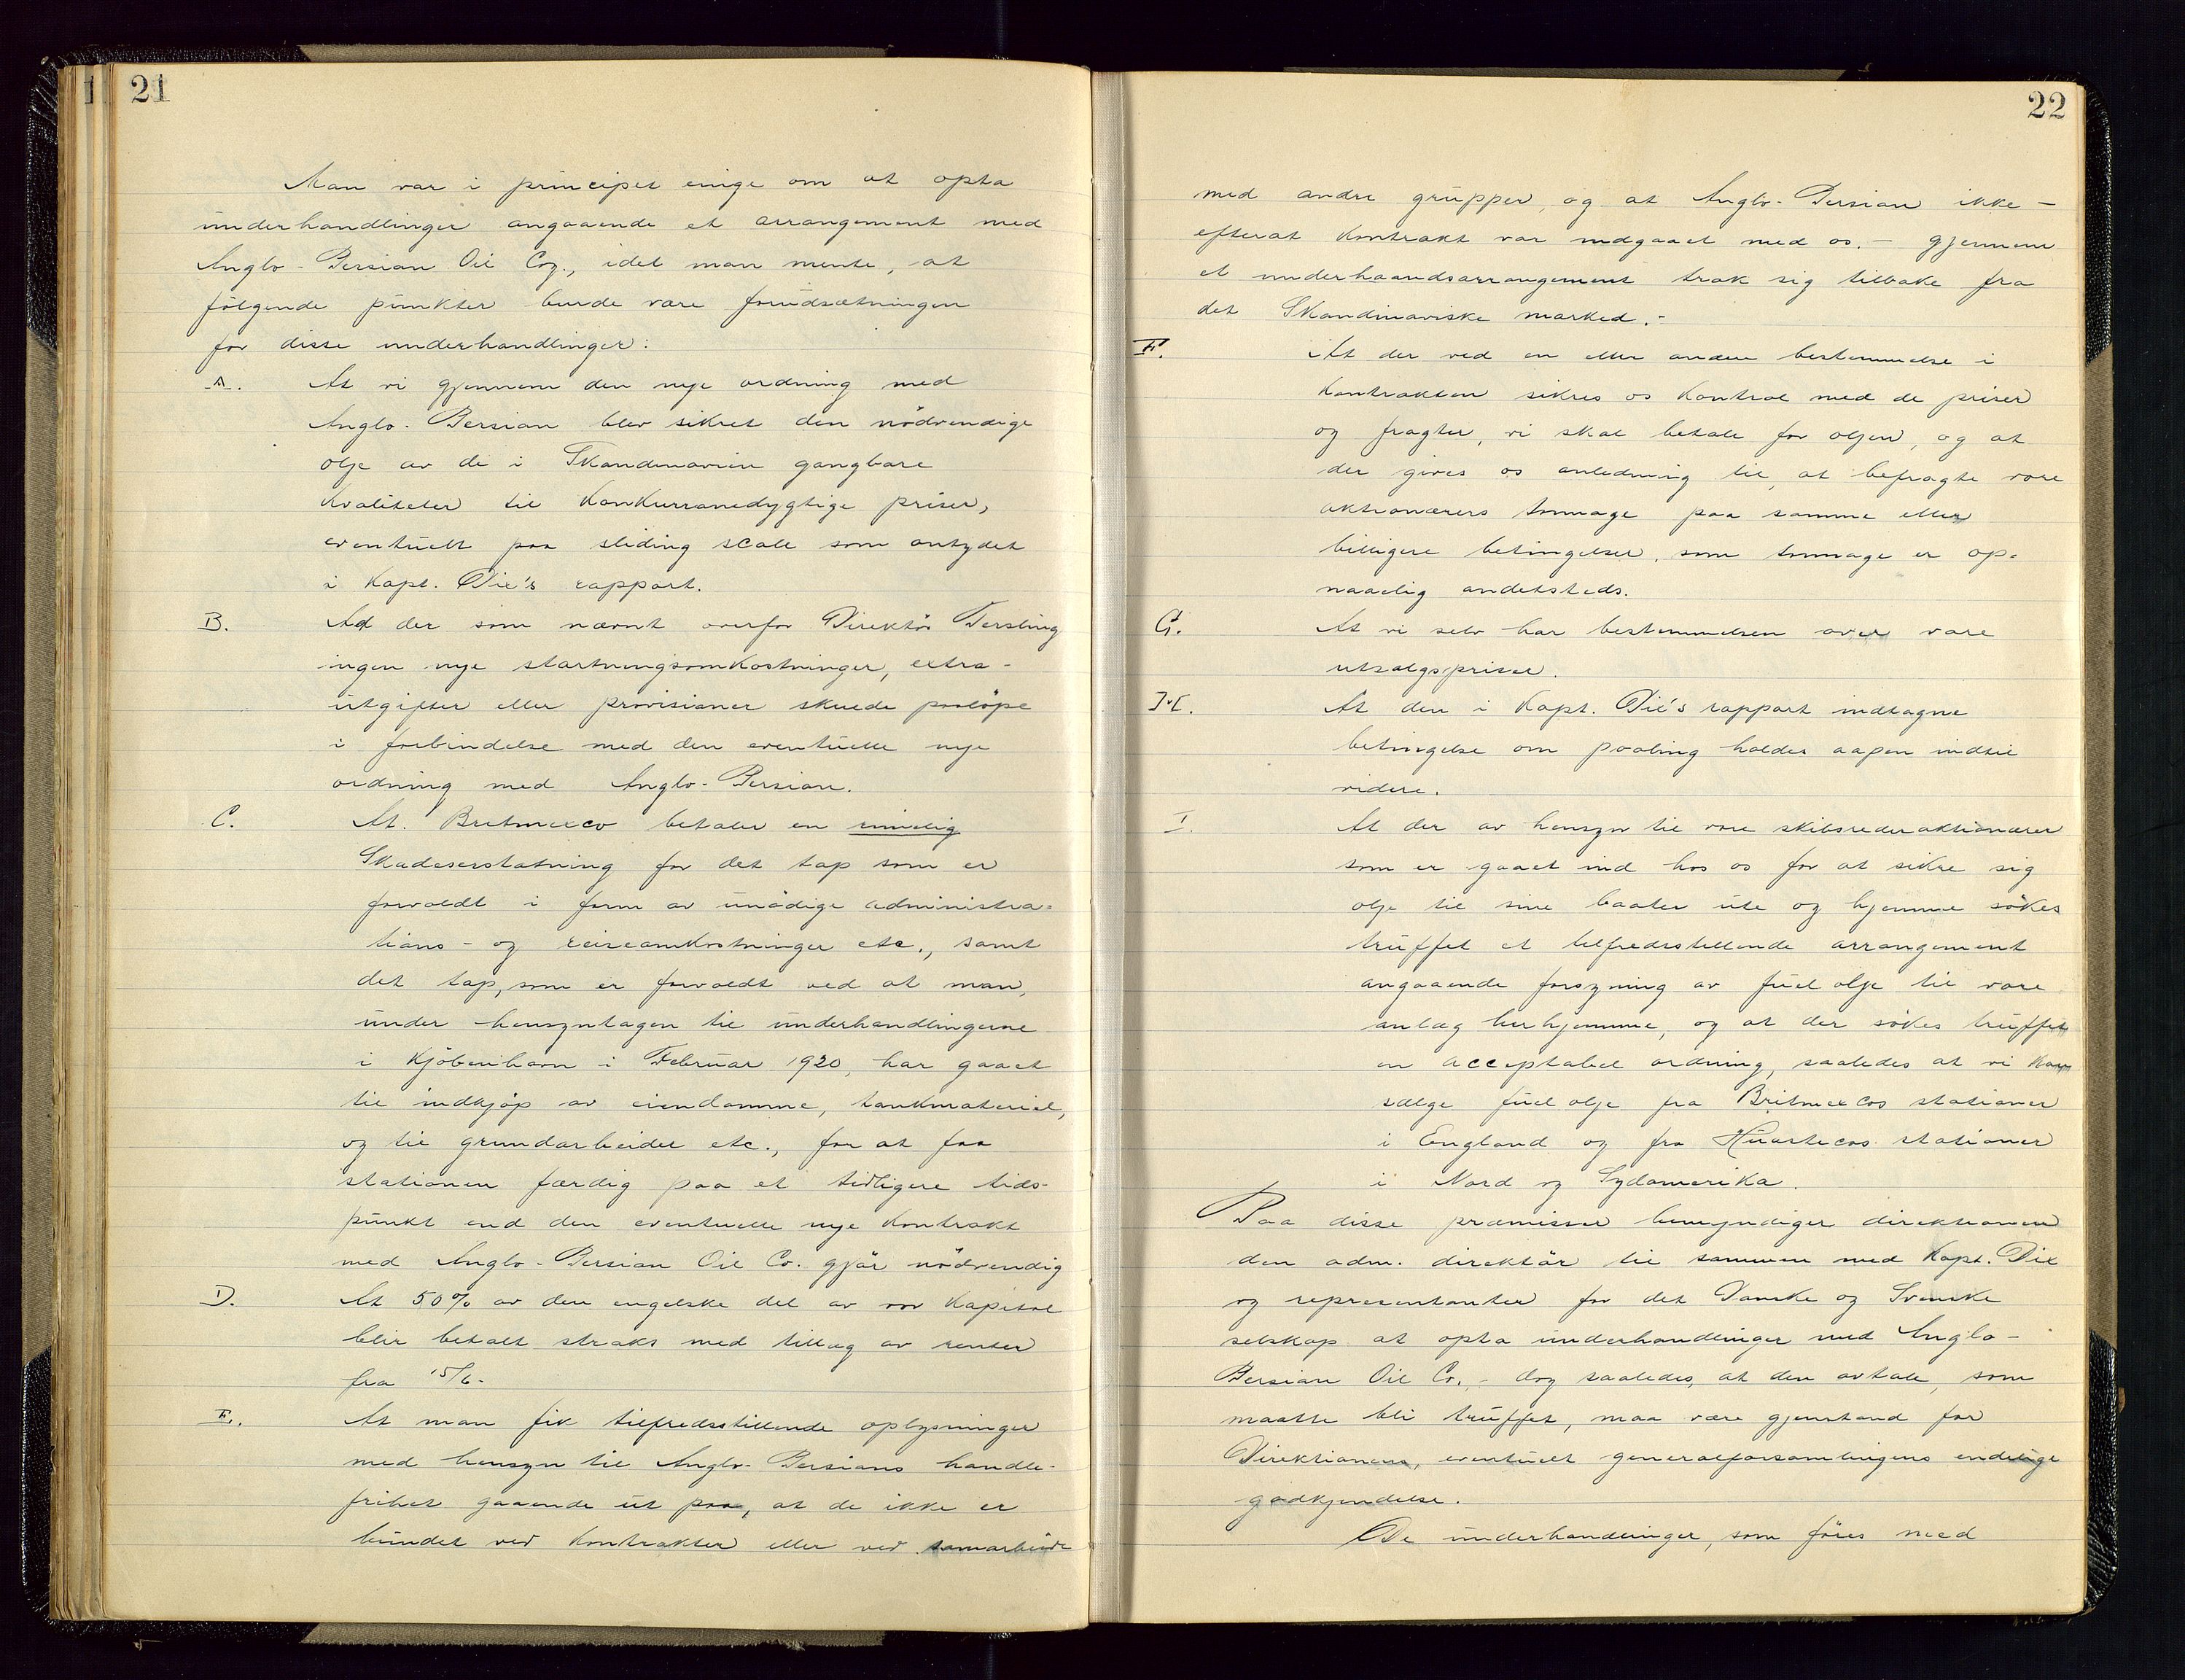 21
Man var i principet enige om at opta
underhandlinger angaaende et arrangement med
Anglo-Persian Oil Coy., idet man mente, at
følgende punkter burde være forudsætningen
for disse underhandlinger:
A. At vi gjennem den nye ordning med
Anglo-Persian blev sikret den nödvendige
olje av de i Skandinavien gangbare
Kvaliteter til Konkurransedygtige priser,
eventuelt paa sliding scale som antydet
i Kapt. Dil's rapport.
B. At der som nævnt overfor Direktör Tersling
ingen nye startningsomkostninger, extra-
utgifter eller provisioner skulde paalöpe
i forbindelse med den eventuelle nye
ordning med Anglo-Persian.
C. At Britmexco betaler en rimelig
Skadeserstatning for det tap som er
forvoldt i form av unödige administra-
tions- og reiseomkostninger etc., samt
det tap, som er forvoldt ved at man,
under hensyntagen til underhandlingerne
i Kjöbenhavn i Februar 1920, har gaaet
til indkjöp av eiendomme, tankmateriel,
og til grundarbeider etc., for at faa
stationen færdig paa et tidligere tids-
punkt end den eventuelle nye Kontrakt
med Anglo-Persian Oil Co. gjör nödvendig
D. At 50% av den engelske del av vor Kapital
blir betalt straks med tillæg av renter
fra 15/6.
E. At man fik tilfredsstillende oplysninger
med hensyn til Anglo-Persians handle-
frihet gaaende ut paa, at de ikke er
bundet ved Kontrakter eller ved samarbeide
22
med andre grupper, og at Anglo-Persian ikke -
efterat Kontrakt var indgaaet med os. - gjennem
et underhaandsarrangement trak sig tilbake fra
det Skandinaviske marked.-
F. At der ved en eller anden bestemmelse i
Kontrakten sikres os Kontrol med de priser
og fragter, vi skal betale for oljen, og at
der gives os anledning til, at befragte vore
aktionærers tonnage paa samme eller
billigere betingelser, som tonnage er op-
naaelig andetsteds.
G. At vi selv har bestemmelsen over vore
utsalgspriser.
H. At den i Kapt. Dil's rapport indtagne
betingelse om pooling holdes aapen indtil
videre.
I. At der av hensyn til vore skibsrederaktionærer
som er gaaet ind hos os for at sikre sig
olje til sine baater ute og hjemme sökes
truffet et tilfredsstillende arrangement
angaaende forsyning av fuel olje til vore
anlæg herhjemme, og at der sökes truffet
en acceptabel ordning, saaledes at vi Kan
sælge fuel olje fra Britmexcos stationer
i England og fra Huastecas stationer
i Nord og Sydamerika.
Paa disse præmisser bemyndiger direktionen
den adm. direktör til sammen med Kapt. Dil
og representanter for det Danske og Svenske
selskap at opta underhandlinger med Anglo-
Persian Oil Co., - dog saaledes, at den avtale, som
maatte bli truffet, maa være gjenstand for
Direktionens, eventuelt generalforsamlingens endelige
godkjendelse.
De underhandlinger, som föres med